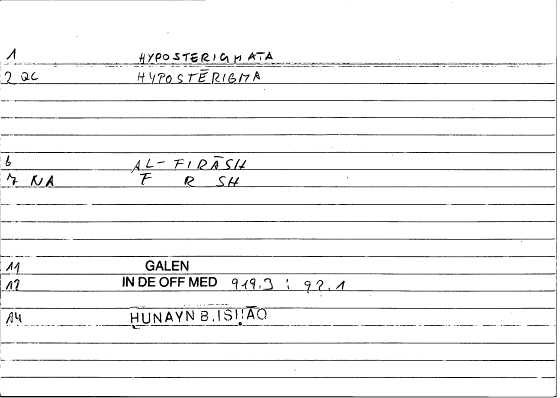 1 HYPOSTERIGMATA
2 QC HYPOSTĒRIGMA
6 AL-FIRĀSH
7 NA F R SH
11 GALEN
12 IN DE OFF MED 919.3 : 92.1
14 HUNAYN B. ISḤĀQ